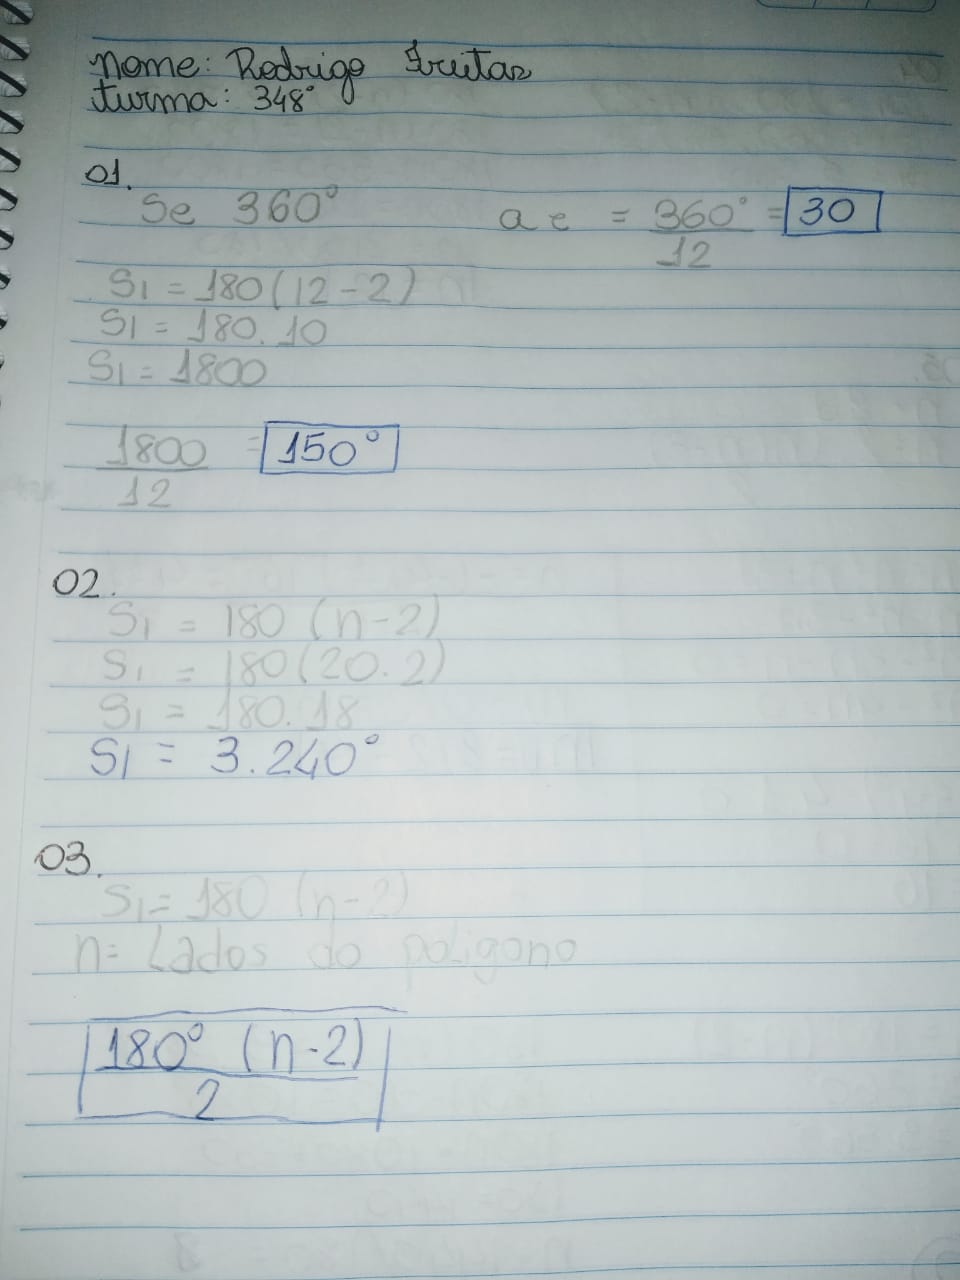 Nome: Rodrigo Frutas
turma: 348°
01.
Se 360°
ae = 360° = 30
12
Si = 180(12-2)
Si = 180.10
Si = 1800
1800 = 150°
12
02.
Si = 180 (n-2)
Si = 180(20.2)
Si = 180.18
Si = 3.240°
03.
Si = 180 (n-2)
n= Lados do poligono
180° (n-2)
2